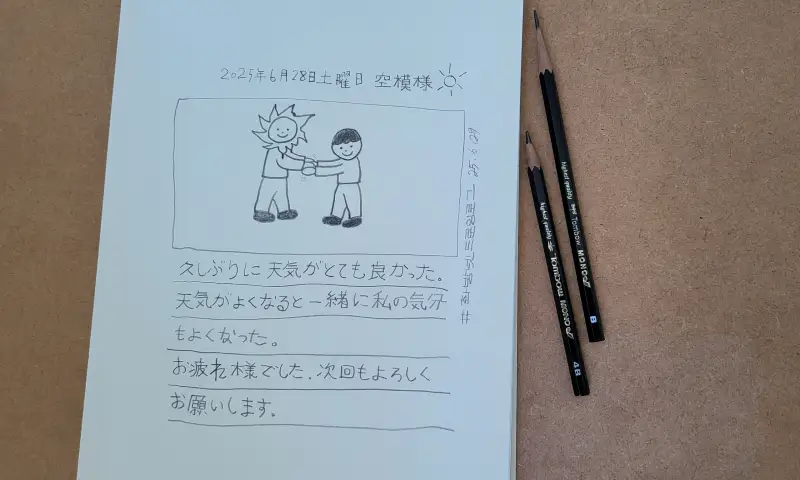 2025年6月28日土曜日 空模様
久しぶりに天気がとても良かった。
天気がよくなると一緒に私の気分
もよくなった。
お疲れ様でした.次回もよろしく
お願いします。
25.6.28
highest quality Tombow MONO B
highest quality Tombow MONO 4B